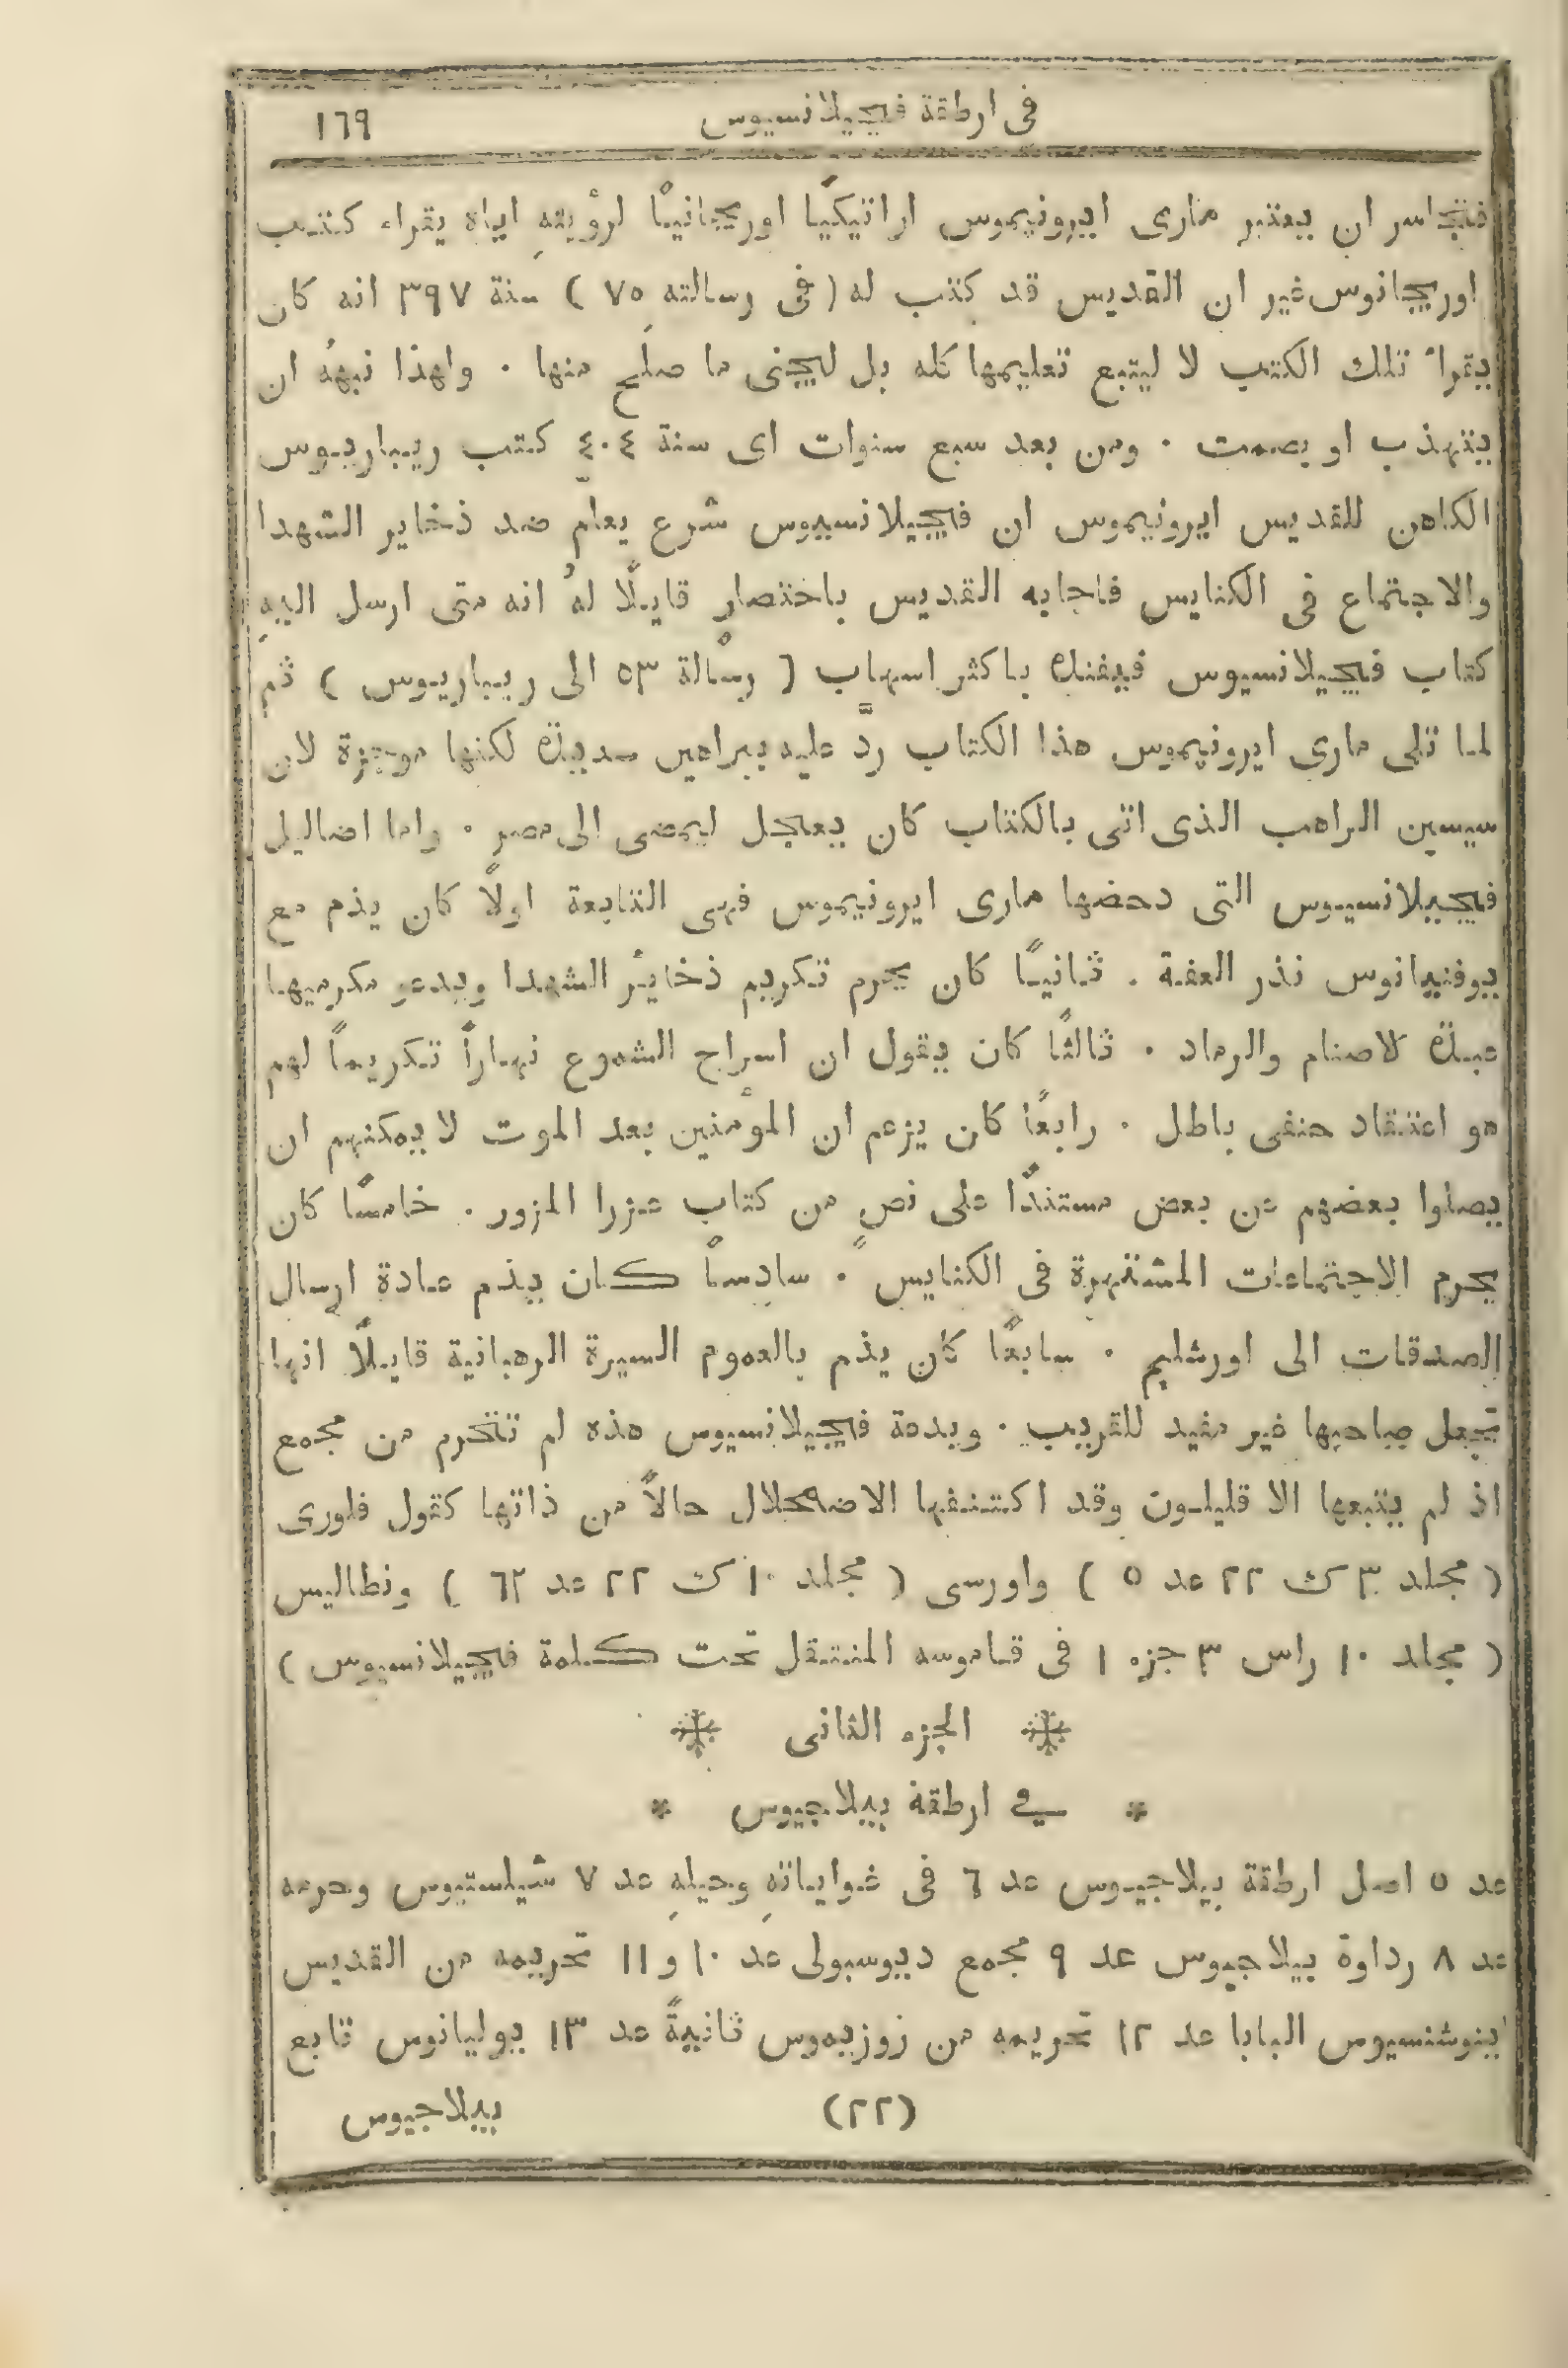 في ارطقة فيجيلانسيوس ١٦٩
فتجاسر ان يعتبر مارى ايرونيموس اراتيكيًا اوريجانيًا لرؤيتهِ اياه يقراء كتب
اوريجانوس غير ان القديس قد كتب له (فى رسالته ٧٥ ) سنة ٣٩٧ انه كان
يقرأ تلك الكتب لا ليتبع تعليمها كله بل ليجنى ما صلح منها ٠ ولهذا نبههُ ان
يتهذب او يصمت ٠ ومن بعد سبع سنوات اى سنة ٤٠٤ كتب ريباريوس
الكاهن للقديس ايرونيموس ان فيجيلانسيوس شرع يعلم ضد ذخاير الشهدا
والاجتماع فى الكنايس فاجابه القديس باختصار قايلًا لهُ انه متى ارسل اليهِ
كتاب فيجيلانسيوس فيفنده باكثر اسهاب ( رسالة ٥٣ الى ريباريوس ) ثم
لما تلى مارى ايرونيموس هذا الكتاب ردَّ عليه ببراهين سديدة لكنها موجزة لان
سيسين الراهب الذى اتى بالكتاب كان يعجل ليمضى الى مصر ٠ واما اضاليل
فيجيلانسيوس التى دحضها مارى ايرونيموس فهى التابعة اولًا كان يذم مع
يوفنيانوس نذر العفة ٠ ثانيًا كان يحرم تكريم ذخاير الشهدا ويدعو مكرميها
عبدة الاصنام والرماد ٠ ثالثًا كان يقول ان اسراج الشموع نهارًا تكريمًا لهم
هو اعتقاد حنفى باطل ٠ رابعًا كان يزعم ان المؤمنين بعد الموت لا يمكنهم ان
يصلوا بعضهم عن بعض مستندًا على نص من كتاب عزرا المزور ٠ خامسًا كان
يحرم الاجتماعات المشتهرة فى الكنايس ٠ سادسًا كان يذم عادة ارسال
الصدقات الى اورشليم ٠ سابعًا كان يذم بالعموم السيرة الرهبانية قايلًا انها
تجعل صاحبها غير مفيد للقريب ٠ وبدعة فيجيلانسيوس هذه لم تتحرم من مجمع
اذ لم يتبعها الا قليلون وقد اكتنفها الاضمحلال حالًا من ذاتها كقول فلورى
( مجلد ٣ ك ٢٢ عد ٥ ) واورسى ( مجلد ١٠ ك ٢٢ عد ٦٢ ) ونطاليس
( مجلد ١٠ راس ٣ جزء ١ فى قاموسه المنتقل تحت كلمة فيجيلانسيوس )
الجزء الثانى
* فى ارطقة بيلاجيوس *
عد ٥ اصل ارطقة بيلاجيوس عد ٦ فى غواياتهِ وحيلهِ عد ٧ شيلستيوس وحرمه
عد ٨ رداوة بيلاجيوس عد ٩ مجمع ديوسبولى عد ١٠ و ١١ تحريمه من القديس
اينوشنسيوس البابا عد ١٢ تحريمه من زوزيموس ثانيةً عد ١٣ يوليانوس تابع
(٢٢) بيلاجيوس